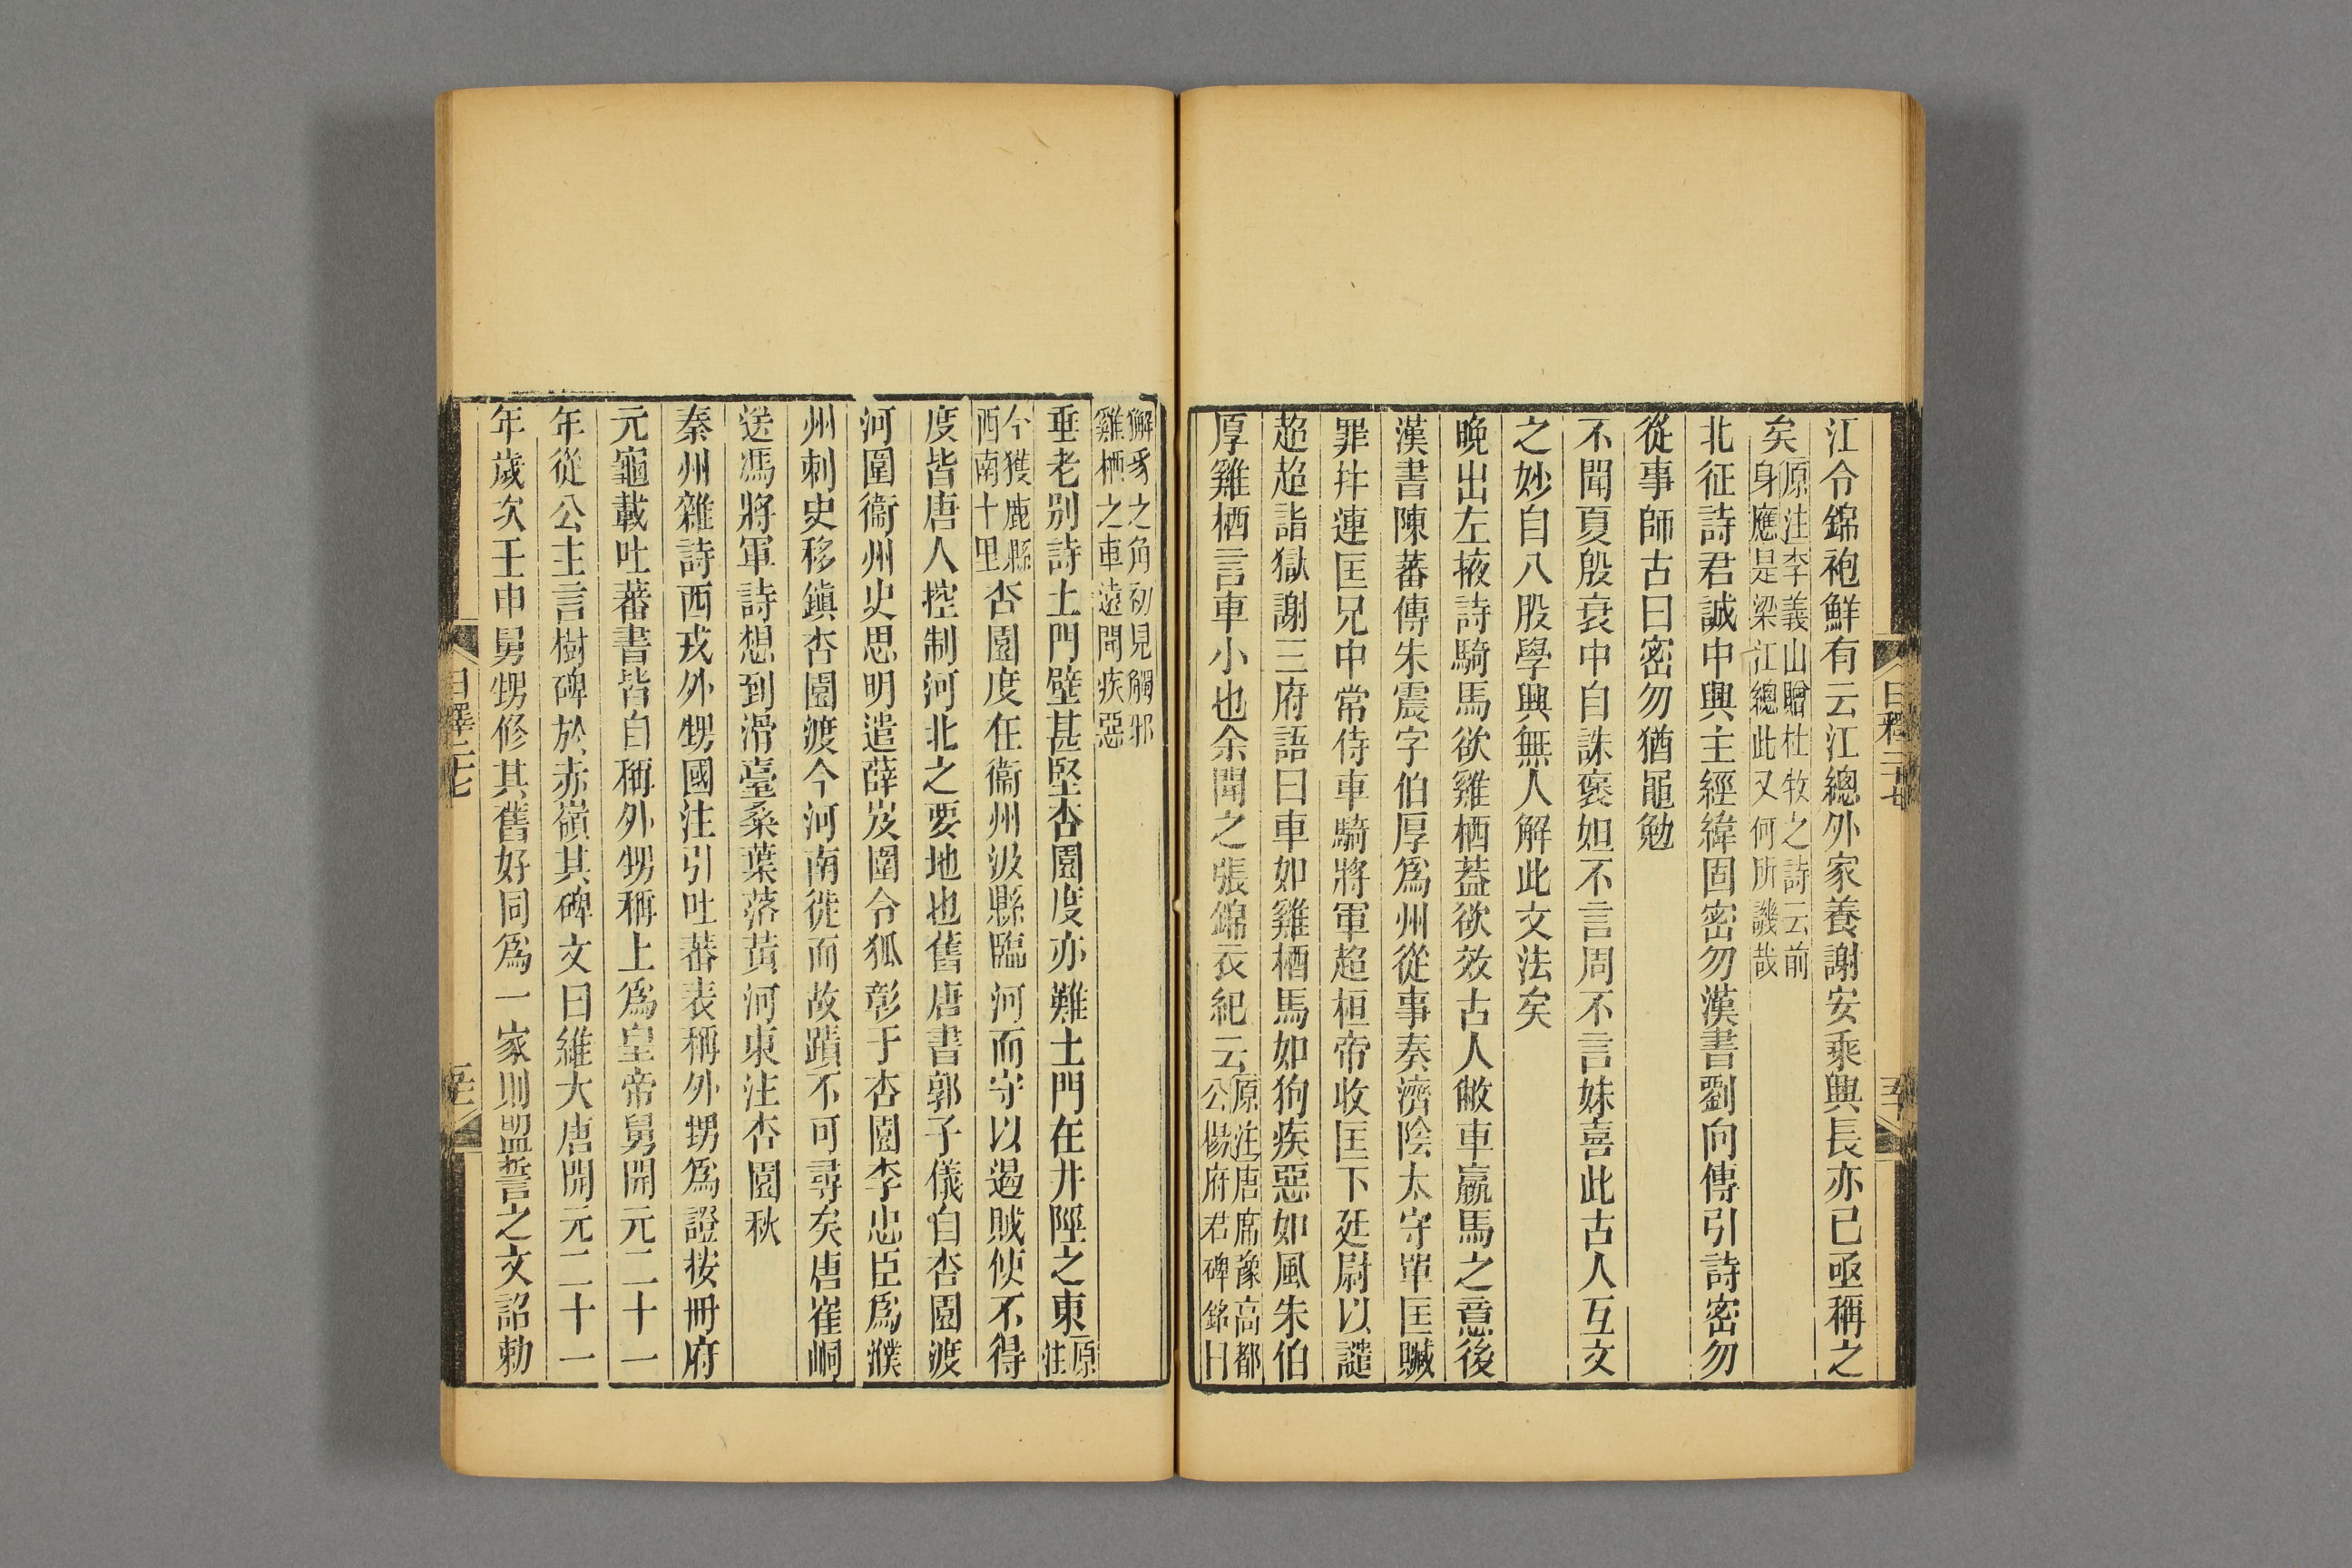 江令錦袍鮮有云江總外家養謝安乘興長亦已亟稱之
矣原注李義山贈杜牧之詩云前身應是梁江總此又何所譏哉
北征詩君誠中興主經緯固密勿漢書劉向傳引詩密勿
從事師古曰密勿猶黽勉
不聞夏殷衰中自誅褒妲不言周不言妹喜此古人互文
之妙自八股學興無人解此文法矣
晚出左掖詩騎馬欲雞栖蓋欲效古人敝車羸馬之意後
漢書陳蕃傳朱震字伯厚爲州從事奏濟陰太守單匡贓
罪幷連匡兄中常侍車騎將軍超桓帝收匡下廷尉以譴
超超詣獄謝三府語曰車如雞栖馬如狗疾惡如風朱伯
厚雞栖言車小也余聞之張錦衣紀云原注唐席豫高都公楊府君碑銘曰
獬豸之角初見觸邪雞栖之車遠聞疾惡
垂老別詩土門壁甚堅杏園度亦難土門在井陘之東原注
今獲鹿縣西南十里杏園度在衞州汲縣臨河而守以遏賊使不得
度皆唐人控制河北之要地也舊唐書郭子儀自杏園渡
河圍衞州史思明遣薛岌圍令狐彰于杏園李忠臣爲濮
州刺史移鎭杏園渡今河南徙而故蹟不可尋矣唐崔峒
送馮將軍詩想到滑臺桑葉落黃河東注杏園秋
秦州雜詩西戎外甥國注引吐蕃表稱外甥爲證按冊府
元龜載吐蕃書皆自稱外甥稱上爲皇帝舅開元二十一
年從公主言樹碑於赤嶺其碑文曰維大唐開元二十一
年歲次壬申舅甥修其舊好同爲一家則盟誓之文詔勅